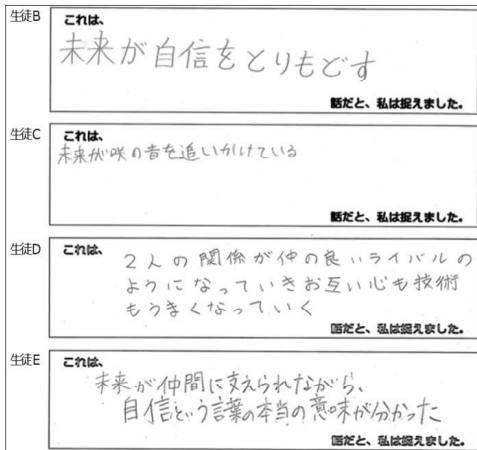 生徒B
これは、
未来が自信をとりもどす
話だと、私は捉えました。
生徒C
これは、
未来が咲の音を追いかけている
話だと、私は捉えました。
生徒D
これは、
2人の関係が仲の良いライバルの
ようになっていきお互い心も技術
もうまくなっていく
話だと、私は捉えました。
生徒E
これは、
未来が仲間に支えられながら、
自信という言葉の本当の意味が分かった
話だと、私は捉えました。